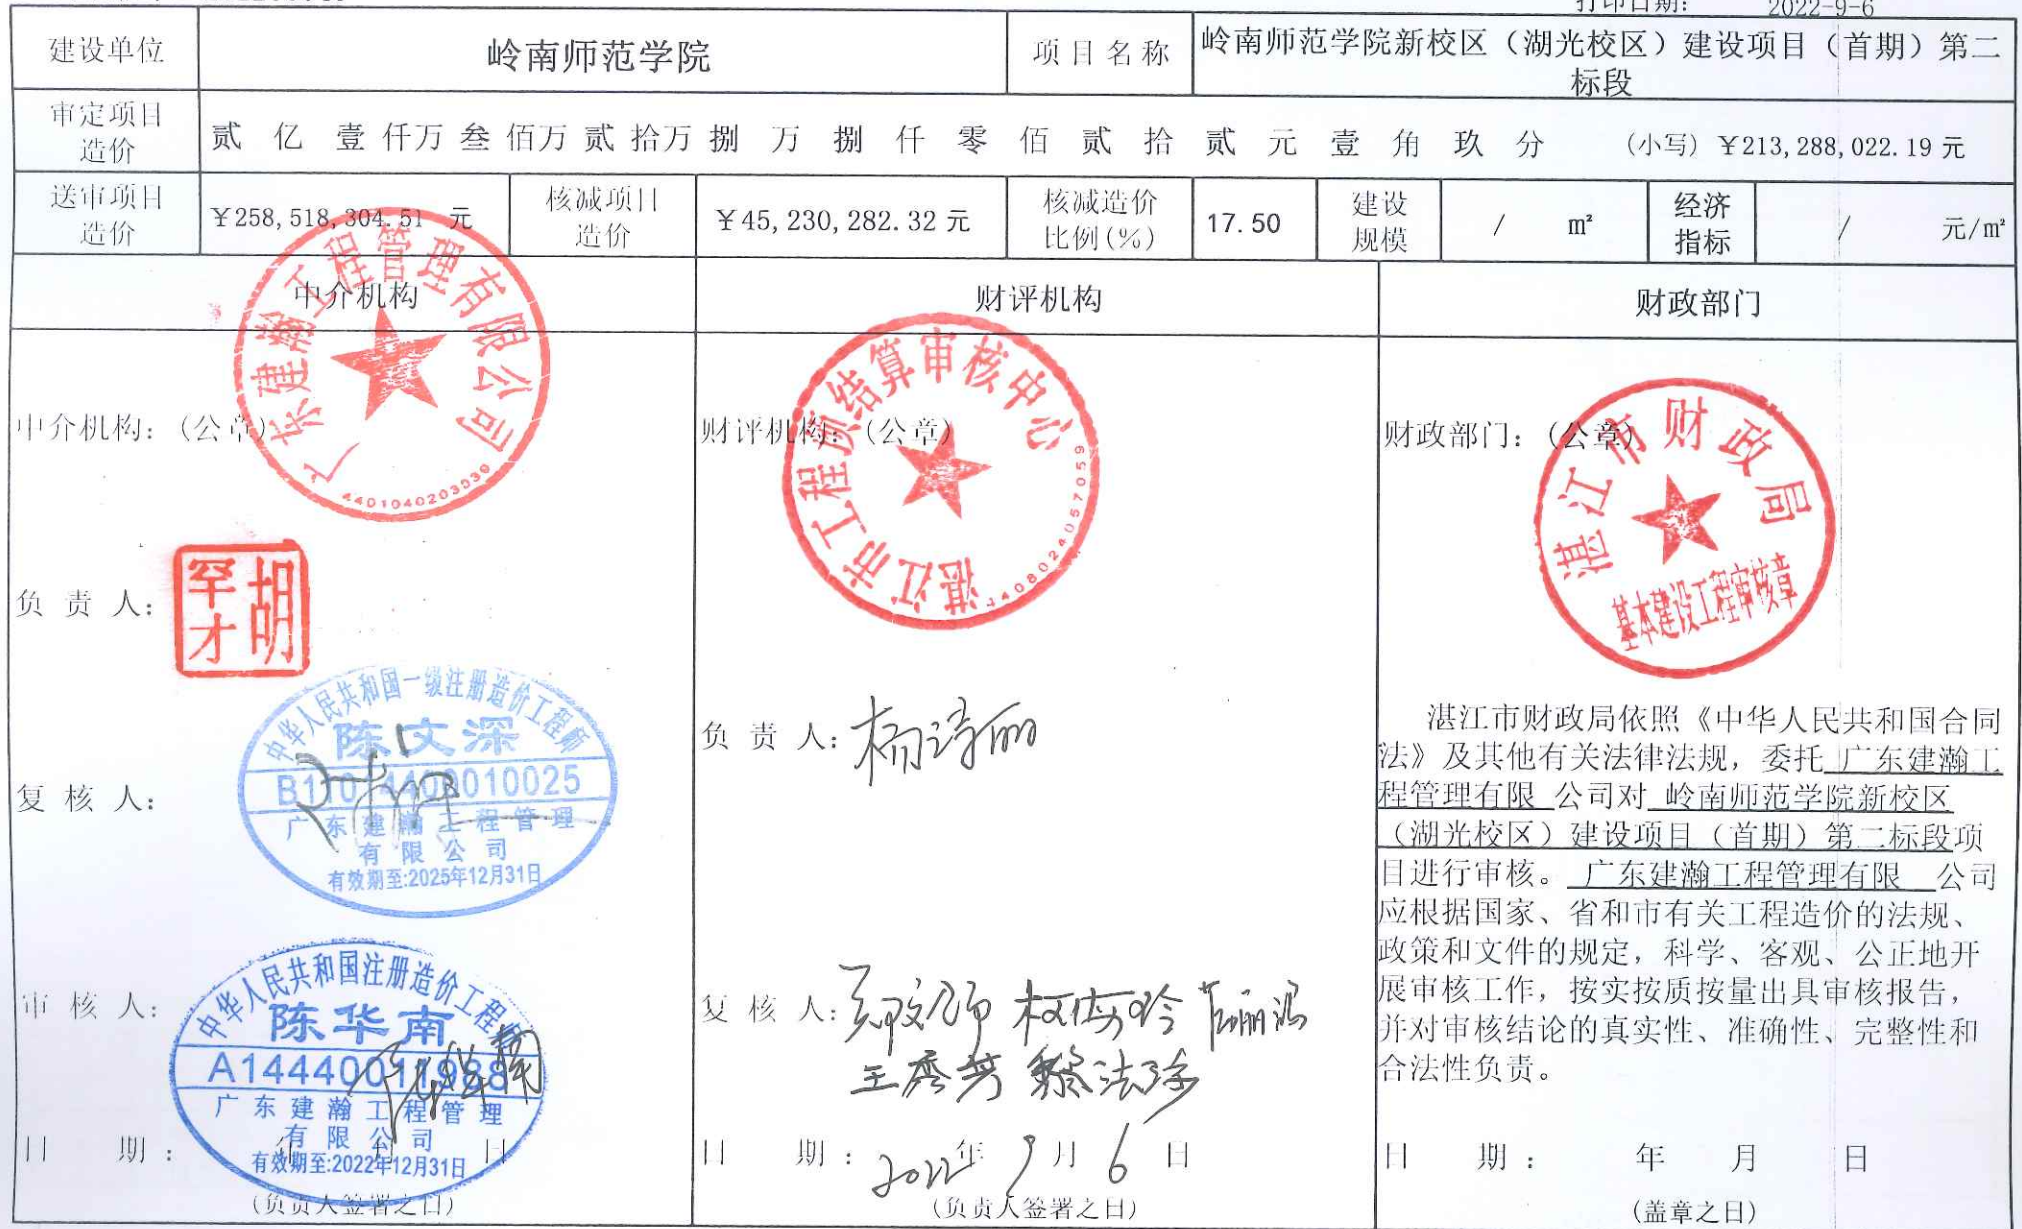 打印日期： 2022-9-6
建设单位 岭南师范学院 项目名称 岭南师范学院新校区（湖光校区）建设项目（首期）第二
标段
审定项目
造价
贰 亿 壹 仟万 叁 佰万 贰 拾万 捌 万 捌 仟 零 佰 贰 拾 贰 元 壹 角 玖 分 （小写）￥213,288,022.19 元
送审项目
造价
￥258,518,304.51 元
核减项目
造价
￥45,230,282.32 元
核减造价
比例(%)
17.50
建设
规模
/ m²
经济
指标
/ 元/㎡
中介机构 财评机构 财政部门
中介机构：（公章）
广东建瀚工程管理有限公司
4401040203530
负 责 人：
胡罕才
复 核 人：
中华人民共和国一级注册造价工程师
陈文深
B110 4400010025
广东建瀚工程管理
有限公司
有效期至:2025年12月31日
审 核 人：
中华人民共和国注册造价工程师
陈华南
A14440011988
广东建瀚工程管理
有限公司
有效期至:2022年12月31日
陈华南
日 期： 年 月 日
（负责人签署之日）
财评机构：（公章）
湛江市工程预结算审核中心
4408024057059
负 责 人：
复 核 人：
王秀芳
日 期：2022年9月6日
（负责人签署之日）
财政部门：（公章）
湛江市财政局
基本建设工程审核章
湛江市财政局依照《中华人民共和国合同
法》及其他有关法律法规，委托 广东建瀚工
程管理有限 公司对 岭南师范学院新校区
（湖光校区）建设项目（首期）第二标段项
目进行审核。 广东建瀚工程管理有限 公司
应根据国家、省和市有关工程造价的法规、
政策和文件的规定，科学、客观、公正地开
展审核工作，按实按质按量出具审核报告，
并对审核结论的真实性、准确性、完整性和
合法性负责。
日 期： 年 月 日
（盖章之日）